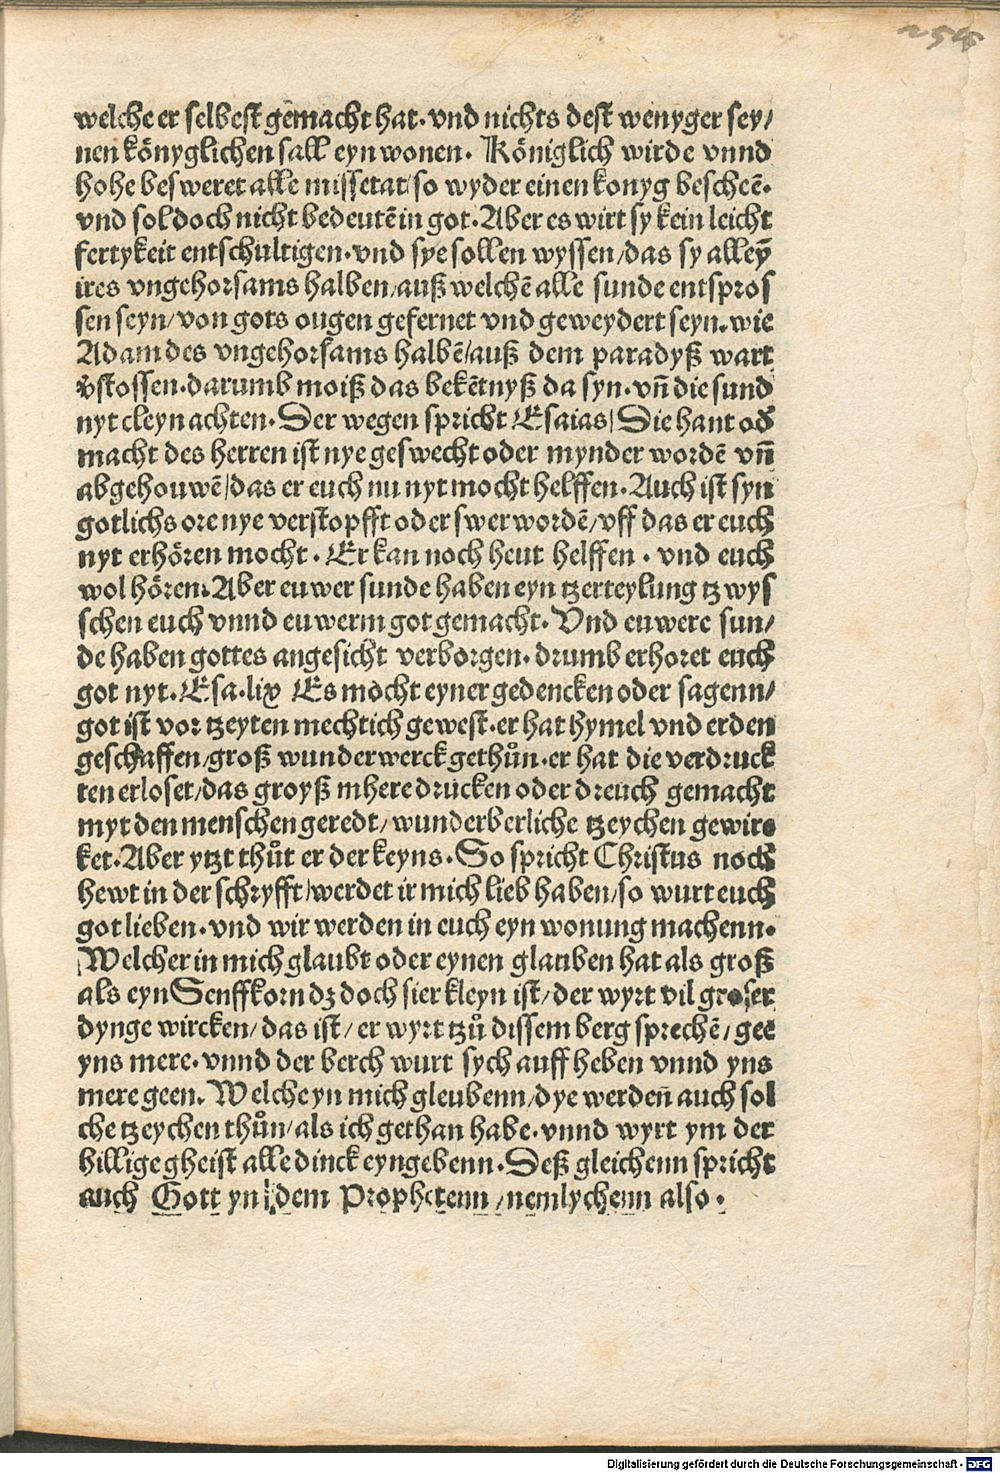 254
welche er selbest gemacht hat. vnd nichts dest wenyger sey/
nen könyglichen sall eyn wonen. Königlich wirde vnnd
hohe besweret alle missetat/ so wyder einen konyg bescheē.
vnd sol doch nicht bedeutē in got. Aber es wirt sy kein leicht
fertykeit entschultigen. vnd sye sollen wyssen/ das sy alleȳ
ires vngehorsams halben/ auß welchē alle sunde entspros
sen seyn/ von gots ougen gefernet vnd geweydert seyn. wie
Adam des vngehorsams halbē/ auß dem paradyß wart
v̄stossen. darumb moiß das bekētnyß da syn. vn̄ die sund
nyt cleyn achten. Der wegen spricht Esaias/ Die hant od̕
macht des herren ist nye geswecht oder mynder wordē vn̄
abgehouwē/ das er euch nu nyt mocht helffen. Auch ist syn
gotlichs ore nye verstopfft oder swer wordē/ vff das er euch
nyt erhören mocht. Er kan noch heut helffen. vnd euch
wol hören. Aber euwer sunde haben eyn tzerteylung tzwys
schen euch vnnd euwerm got gemacht. Vnd euwere sun/
de haben gottes angesicht verborgen. drumb erhoret euch
got nyt. Esa. lix Es mocht eyner gedencken oder sagenn/
got ist vor tzeyten mechtich gewest. er hat hymel vnd erden
geschaffen/ groß wunderwerck gethůn. er hat die verdruck
ten erloset/ das groyß mhere drucken oder dreuch gemacht
myt den menschen geredt/ wunderberliche tzeychen gewir⸗
ket. Aber ytzt thůt er der keyns. So spricht Christus noch
hewt in der schryfft/ werdet ir mich lieb haben/ so wurt euch
got lieben. vnd wir werden in euch eyn wonung machenn.
Welcher in mich glaubt oder eynen glauben hat als groß
als eyn Senffkorn dz doch sier kleyn ist/ der wyrt vil groser
dynge wircken/ das ist/ er wyrt tzů dissem berg sprechē/ gee
yns mere. vnnd der berch wurt sych auff heben vnnd yns
mere geen. Welche yn mich gleubenn/ dye werden̄ auch sol
che tzeychen thůn/ als ich gethan habe. vnnd wyrt ym der
hillige gheist alle dinck eyngebenn. Deß gleichenn spricht
auch Gott yn dem Prophetenn/ nemlychenn also.
Digitalisierung gefördert durch die Deutsche Forschungsgemeinschaft - DFG